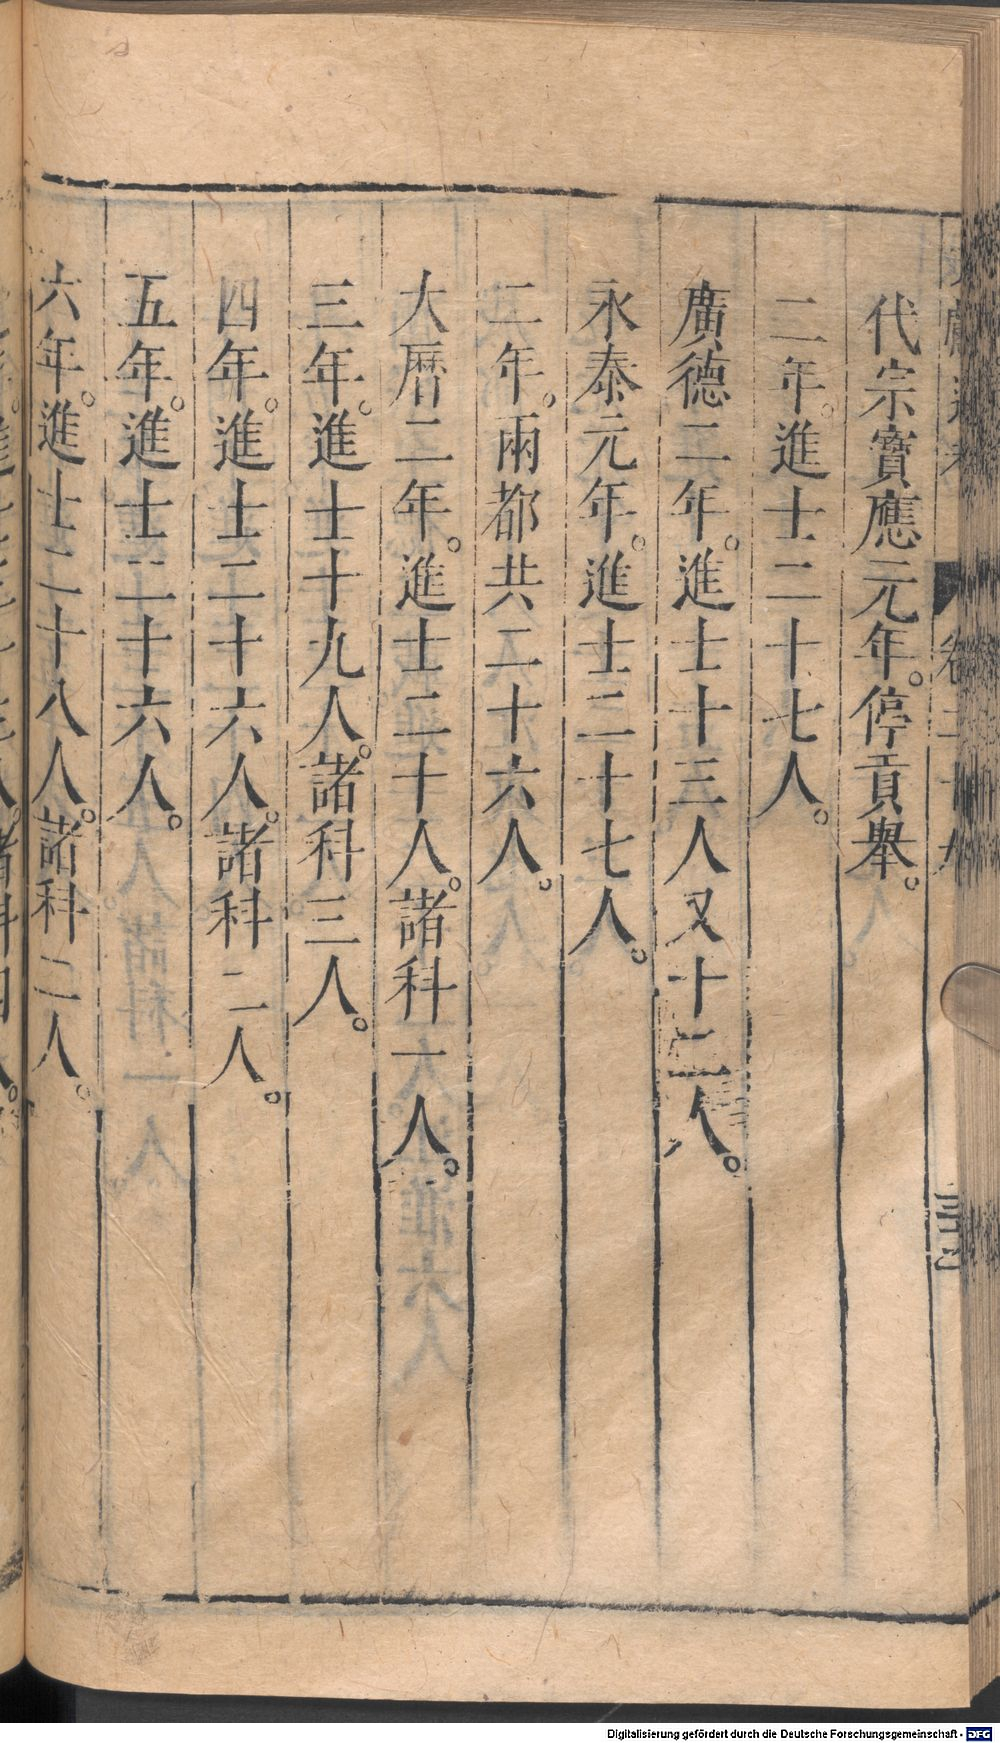 代宗寶應元年。停貢舉。
二年。進士二十七人。
廣德二年。進士十三人又十二人。
永泰元年。進士二十七人。
二年。兩都共二十六人。
大曆二年。進士二十人。諸科一人。
三年。進士十九人。諸科三人。
四年。進士二十六人。諸科二人。
五年。進士二十六人。
六年。進士二十八人。諸科二人。
Digitalisierung gefördert durch die Deutsche Forschungsgemeinschaft - DFG